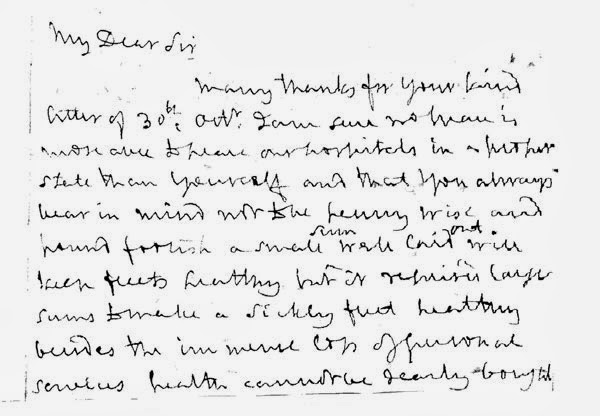 My Dear Sir
Many thanks for your kind
letter of 30th: Octr. I am sure no man is
more able to place our hospitals in a proper
state than yourself and that you always
bear in mind not to be penny wise and
pound foolish a small sum well laid out will
keep fleets healthy but it requires large
sums to make a sickly fleet healthy
besides the immense loss of personal
services health cannot be dearly bought